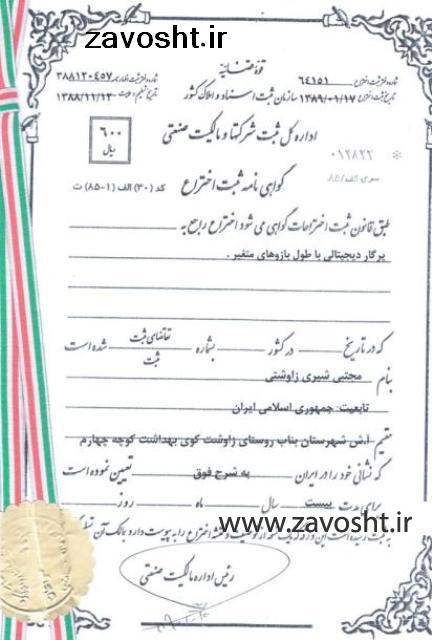 zavosht.ir
قوهٔ قضائیه
شماره و تاریخ ثبت اختراع ۶۴۱۵۱
۳۸۸۱۲۰۴۵۷
تاریخ ثبت اختراع ۱۳۸۹/۰۱/۱۷ سازمان ثبت اسناد و املاک کشور
۱۳۸۸/۱۲/۱۲
اداره کل ثبت شرکتها و مالکیت صنعتی
۶۰۰
ریال
۰۱۲۸۲۲
سری الف/۸۵
گواهی نامه ثبت اختراع
کد (۳۰) الف (۱-۸۵) ت
طبق قانون ثبت اختراعات گواهی می شود اختراع راجع به
پرگار دیجیتالی با طول بازوهای متغیر .
که در تاریخ در کشور بشماره تقاضای ثبت شده است
ثبت
بنام مجتبی شیری زاوشتی
تابعیت: جمهوری اسلامی ایران
مقیم آ.ش شهرستان بناب روستای زاوشت کوی بهداشت کوچه چهارم
که نشانی خود را در ایران به شرح فوق تعیین نموده است
برای مدت بیست سال ماه روز
www.zavosht.ir
به ثبت رسیده است این ورقه یک نسخه از توصیف و نقشه اختراع را به پیوست دارد و مالک آن
رئیس اداره مالکیت صنعتی